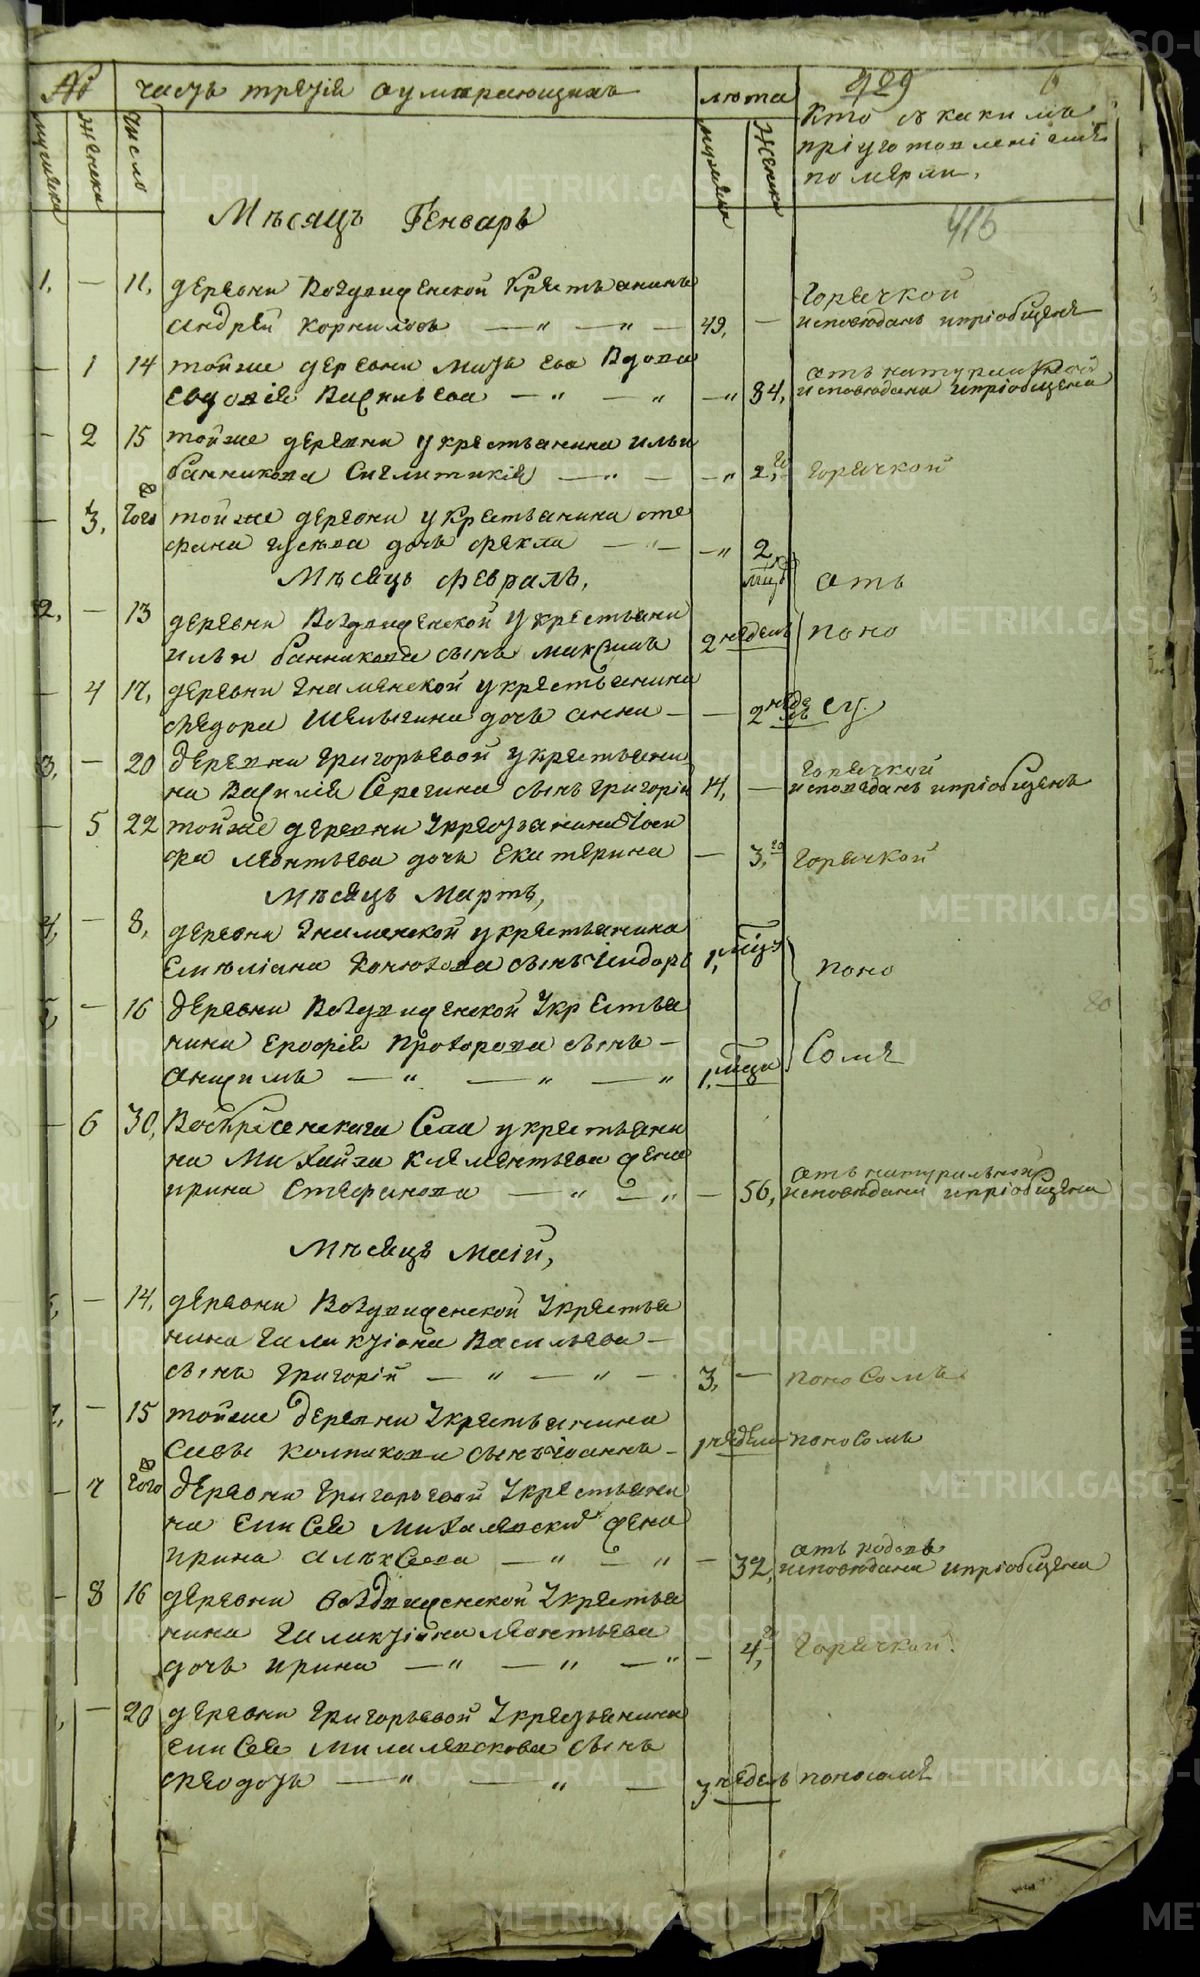 № часть третія о умирающихъ
лѣта
409
416
мужеска
женска
число
мужеска
женска
Кто съ какимъ
пріуготовленіемъ
померли.
Мѣсяцъ Генварь
1. — 11, деревни Воздвиженской Крестьянинъ
Андрей Корниловъ — " — " — 49, — Горячкой
исповѣданъ ипріобщенъ
— 1 14 тойже деревни вдова
Евдокія Васильева — " — " — " 84, отъ натуральной
исповѣдана ипріобщена
— 2 15 тойже деревни укрестьянина ильи
банникова Синклитикія — " — — " 2, го Горячкой
— 3, того тойже деревни укрестьянина сте
фана гусева дочь фекла — " — — " 2 мѣц
Мѣсяцъ февраль,
отъ
2, — 13 деревни Воздвиженской укрестьяни
ильи банникова сынъ максимъ 2 недель
поно
— 4 17, деревни Знаменской укрестьянина
Феодора Шелыгина дочь анна — — 2 неде
ль су.
3, — 20 деревни григорьевой укрестьяни
на Василія Серегина сынъ григорій 14, — Горячкой
исповѣданъ ипріобщенъ
— 5 22 тойже деревни Укрестьянина Іоси
фа леонтьева дочь екатерина — 3, го Горячкой
Мѣсяцъ Мартъ,
4, — 8, деревни Знаменской укрестьянина
Емиліана Конюхова сынъ Исидоръ 1, мѣцъ
поно
5, — 16 деревни Воздвиженской Укрестья
нина Ерофія Прохорова сынъ —
Анисимъ — " — " — " 1, мѣца
Сомъ
— 6 30, Воскресенскаго Села укрестьяни
на Михайла Клементьева жена
ирина Стефанова — " — " — 56, отъ натуральной
исповѣдана ипріобщена
Мѣсяцъ Маій,
— 14, деревни Воздвиженской Укрестья
нина Галактіона Васильева —
сынъ Григорій — " — " — 3, — поносомъ
7, — 15 тойже деревни Укрестьянина
Савы сынъ Іоаннъ — 1 недели поносомъ
— 7 того деревни григорьевой Укрестьяни
на Елисея жена
ирина алексеева — " — " — 32, отъ родовъ
исповѣдана ипріобщена
— 8 16 деревни Воздвиженской Укрестья
нина Галактіона леонтьева
дочь ирина — " — " — " — 4, го Горячкой.
— 20 деревни григорьевой Укрестьянина
елисея сынъ
феодотъ — " — " — 3 недель поносомъ